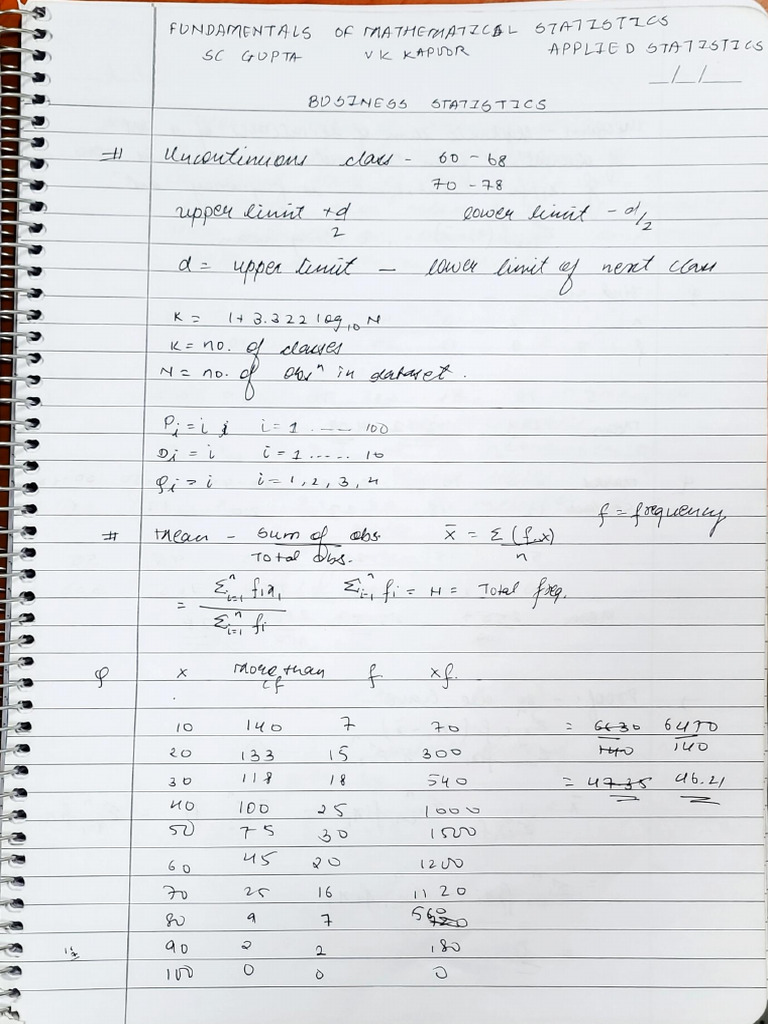 FUNDAMENTALS OF MATHEMATICAL STATISTICS
SC GUPTA VK KAPUOR APPLIED STATISTICS
__/__/____
BUSINESS STATISTICS
# Uncontinuous class - 60 - 68
70 - 78
upper limit + d/2 lower limit - d/2
d = upper limit - lower limit of next class
K = 1 + 3.322 log₁₀ N
K = no. of classes
N = no. of obsⁿ in dataset.
Pi = i ; i = 1 ...... 100
Di = i i = 1 ..... 10
Qi = i i = 1, 2, 3, 4
f = frequency
# Mean - Sum of obs. / Total Obs. x̄ = Σ (f.x) / n
= Σⁿᵢ₌₁ fᵢxᵢ / Σⁿᵢ₌₁ fᵢ Σⁿᵢ₌₁ fi = N = Total freq.
Q x More than cf f xf.
10 140 7 70 = 6630/140 6470/140
20 133 15 300
30 118 18 540 = 47.35 46.21
40 100 25 1000
50 75 30 1500
60 45 20 1200
70 25 16 1120
80 9 7 560
90 2 2 180
100 0 0 0